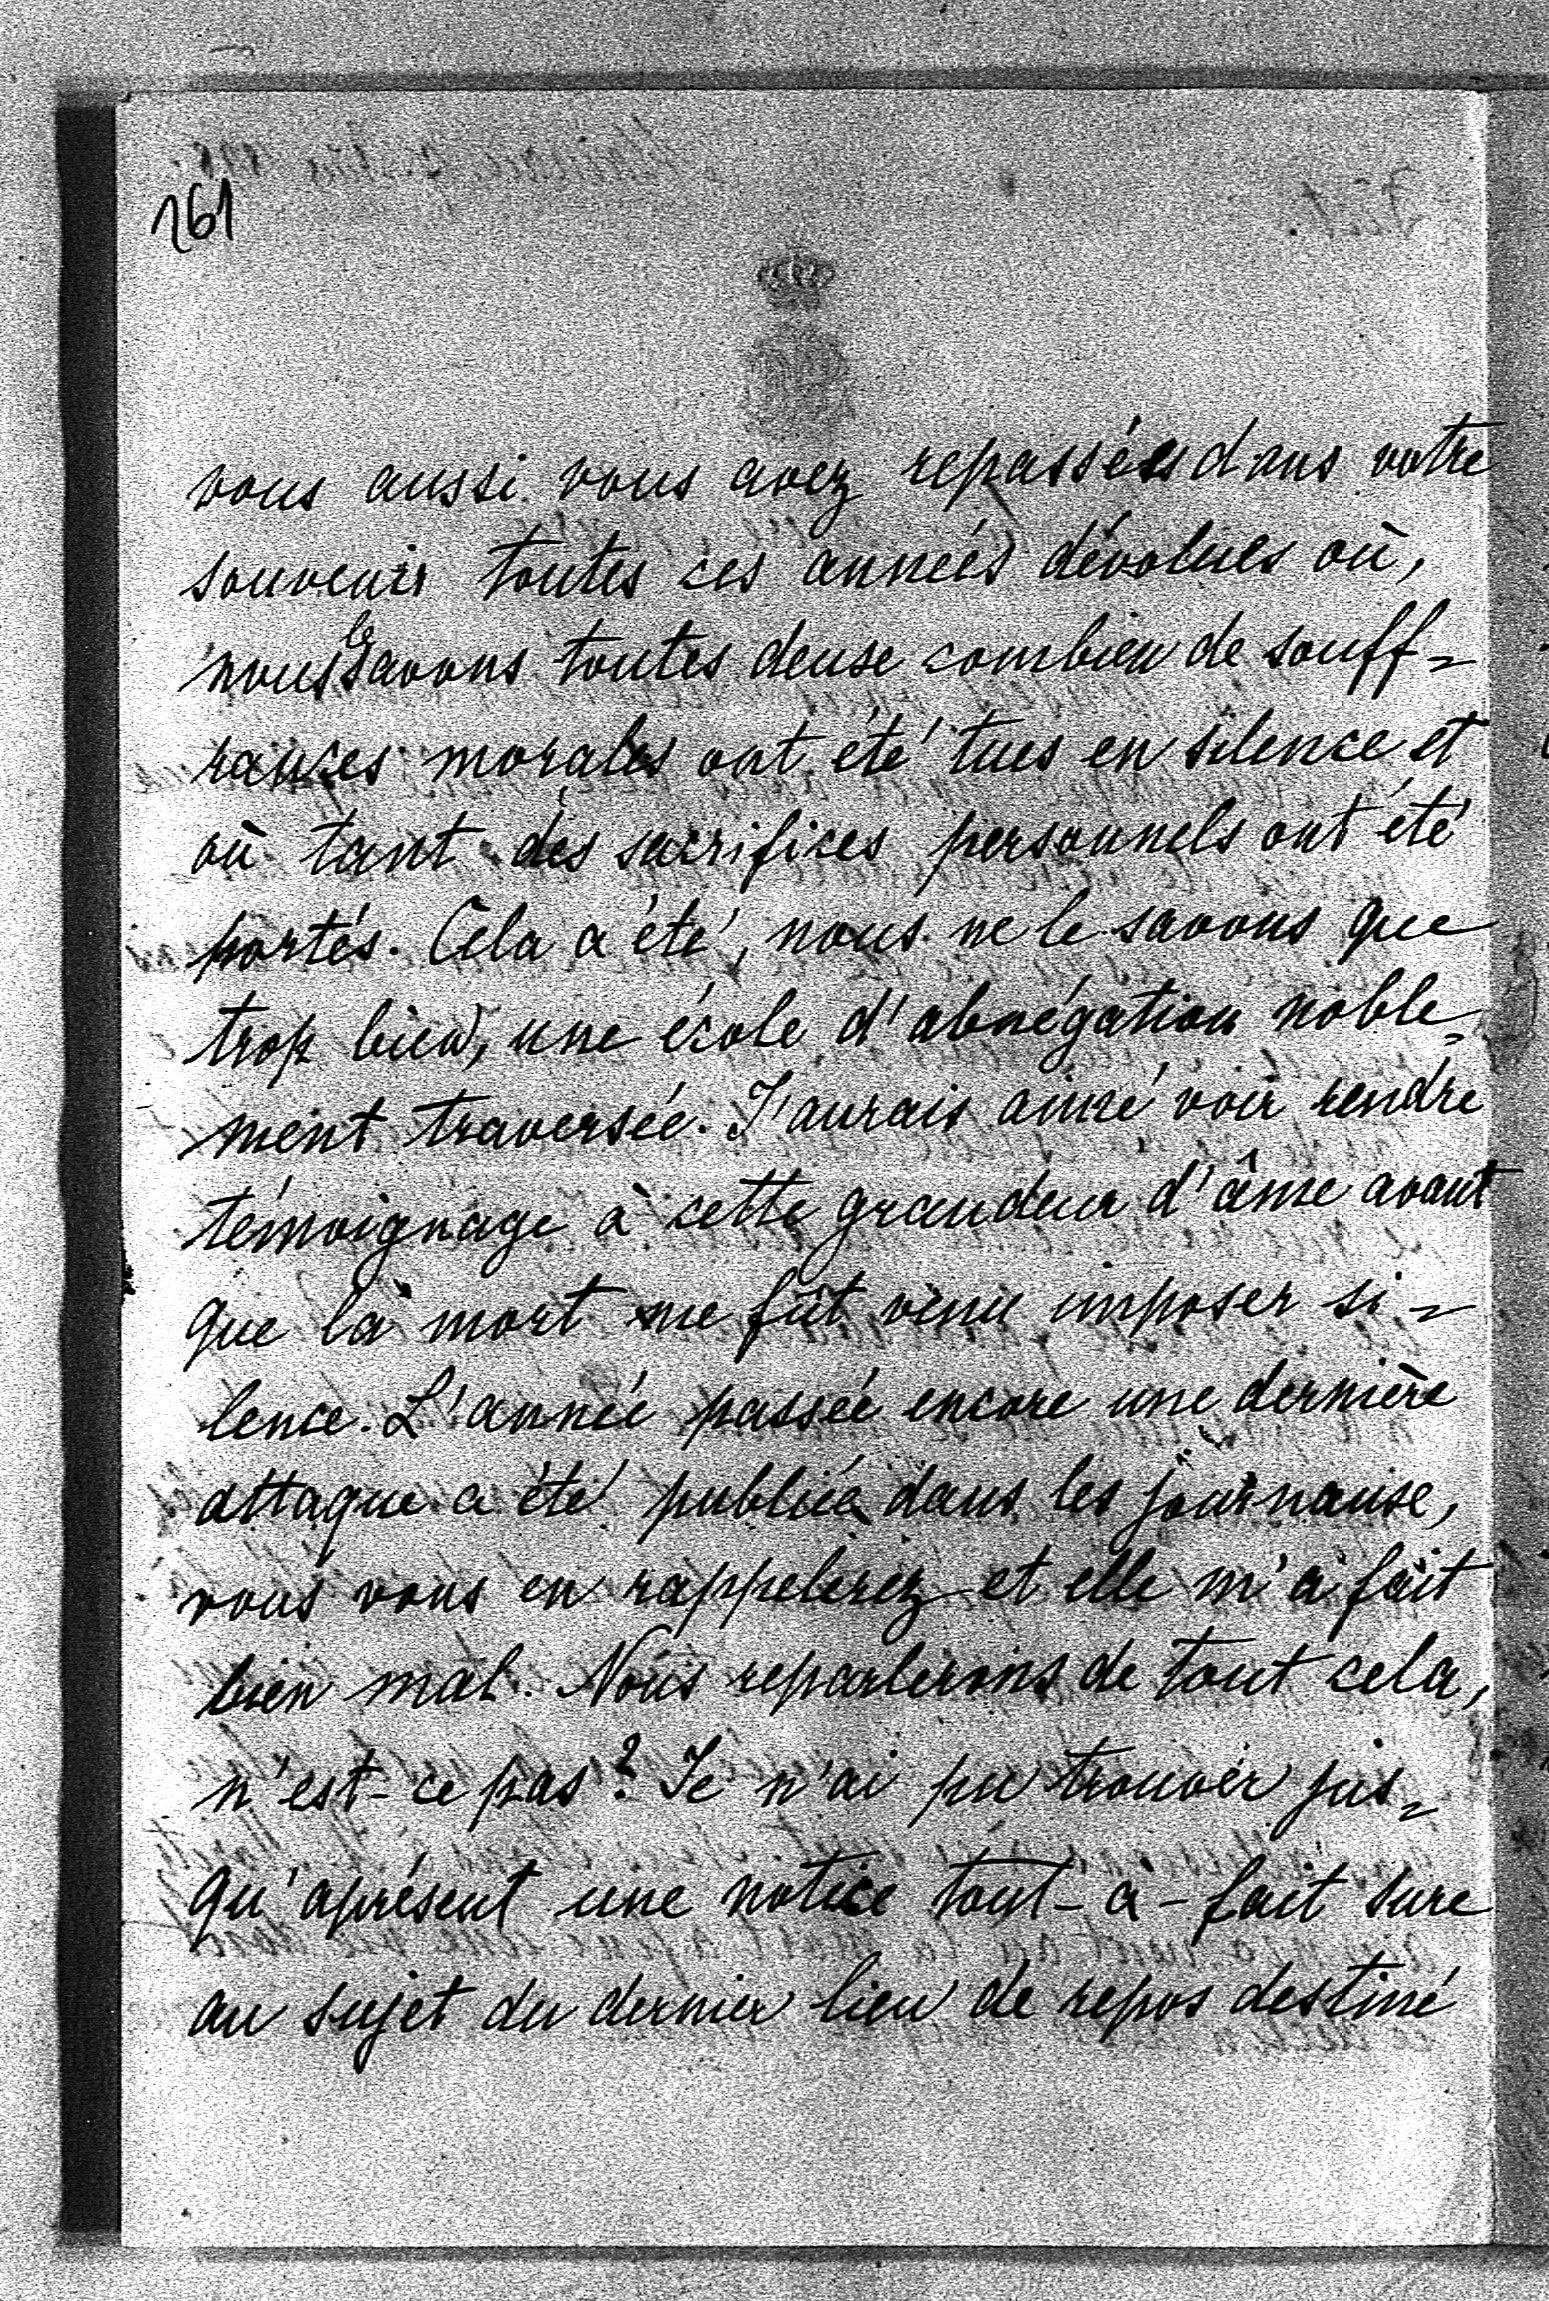 161
vous aussi vous avez repassées dans votre
souvenir toutes ces années dévolues où,
nous le savons toutes deuse combien de souff-
rances morales ont été tues en silence et
où tant des sacrifices personnels ont été
portés. Cela a été, nous ne le savons que
trop bien, une école d'abnégation noble-
ment traversée. J'aurais aimé voir rendre
témoignage à cette grandeur d'âme avant
que la mort me fût venu imposer si-
lence. L'année passée encore une dernière
attaque a été publiée dans les journause,
vous vous en rappelerez et elle m'a fait
bien mal. Nous reparlerons de tout cela,
n'est-ce pas? Je n'ai pu trouver jus-
qu'aprésent une notice tout-à-fait sure
au sujet du dernier lieu de repos destiné